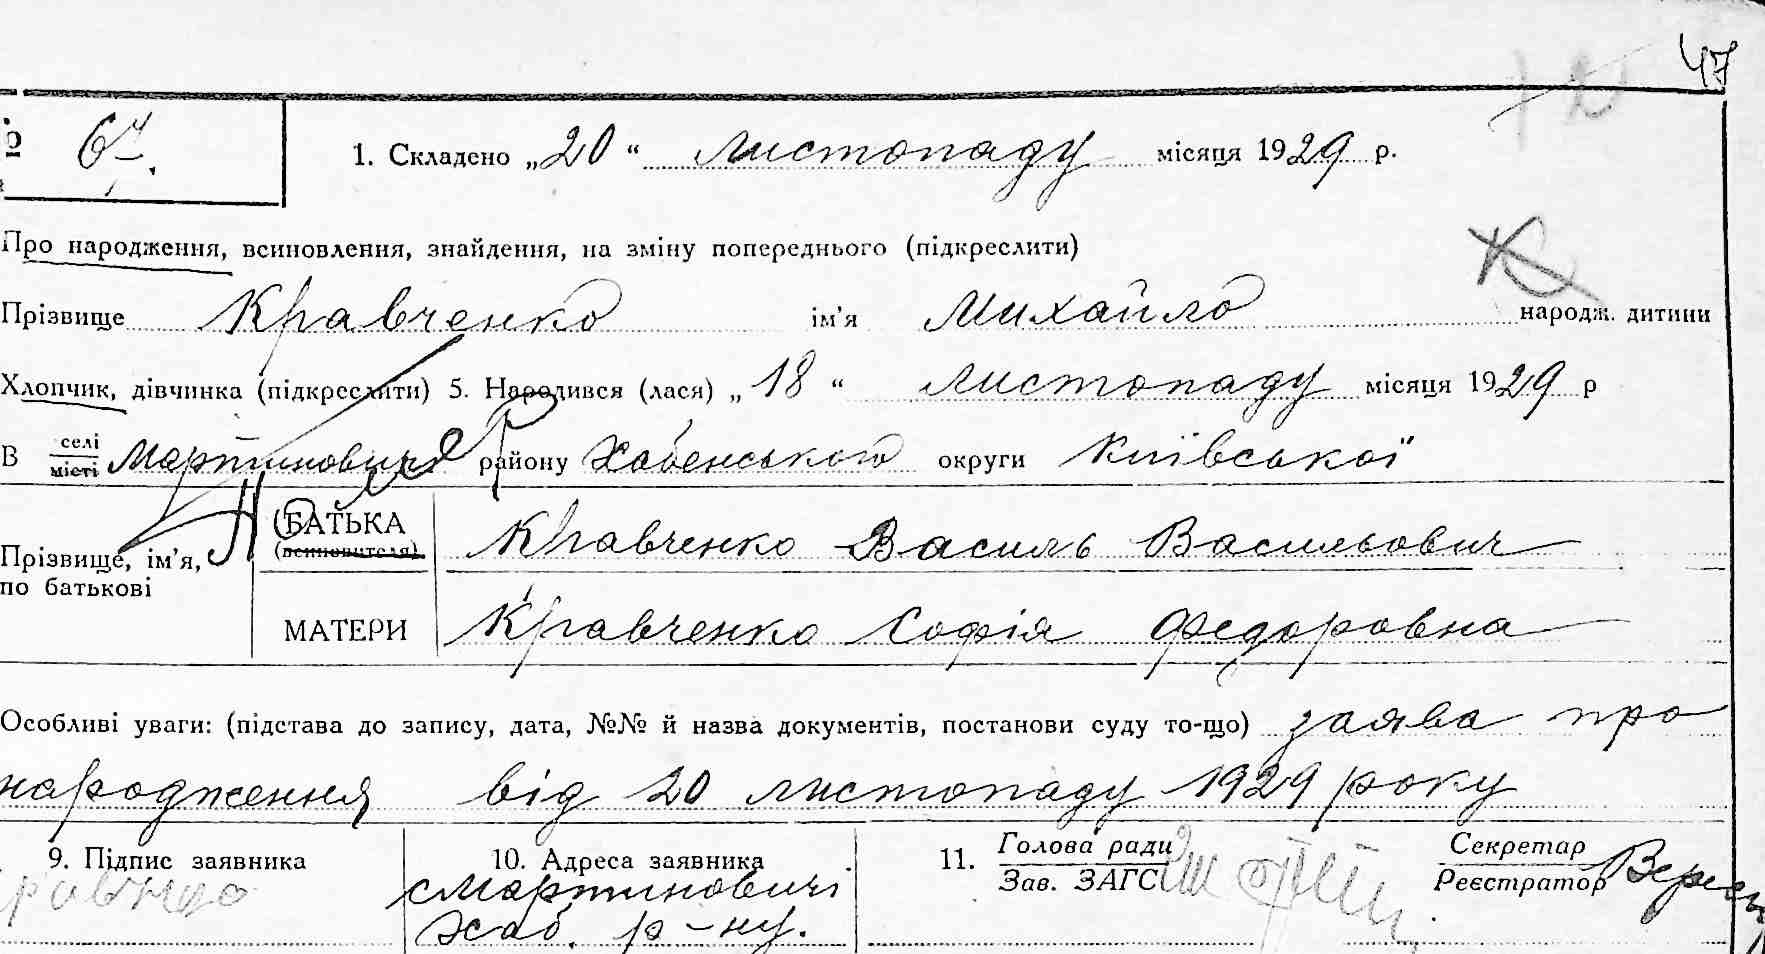 47
№ 67. 1. Складено „20“ листопаду місяця 1929 р.
Про народження, всиновлення, знайдення, на зміну попереднього (підкреслити)
Прізвище Кравченко ім'я Михайло народж. дитини
Хлопчик, дівчинка (підкреслити) 5. Народився (лася) „18“ листопаду місяця 1929 р
В селі місті Мартиновичі району Хабенського округи Київської
Прізвище, ім'я, по батькові
БАТЬКА (всиновителя) Кравченко Василь Васильович
МАТЕРИ Кравченко Софія Федоровна
Особливі уваги: (підстава до запису, дата, №№ й назва документів, постанови суду то-що) заява про
народження від 20 листопаду 1929 року
9. Підпис заявника 10. Адреса заявника 11. Голова ради Зав. ЗАГС Секретар Реєстратор
с Мартиновичі
Хаб. р-ну.